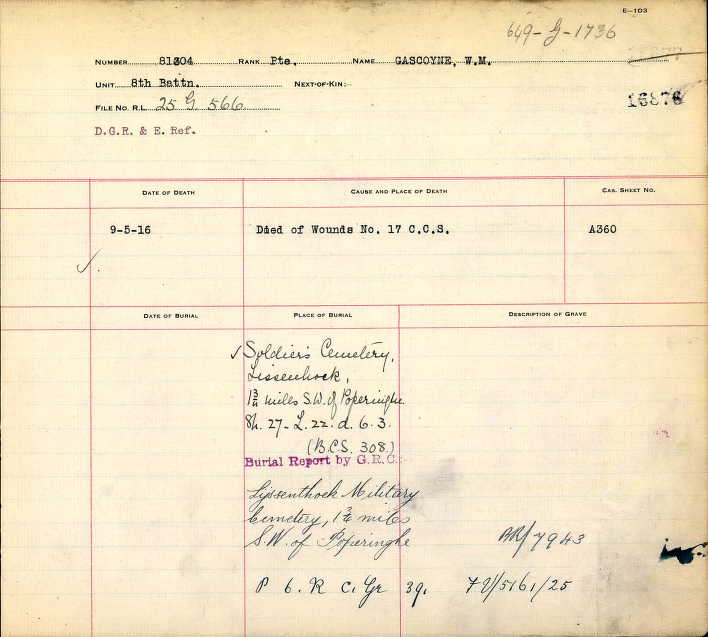 E-103
649-G-1736
NUMBER 81304 RANK Pte. NAME GASCOYNE, W.M.
UNIT 8th Battn. NEXT-OF-KIN:-
FILE NO. R.L. 25 G. 566
16876
D.G.R. & E. Ref.
DATE OF DEATH CAUSE AND PLACE OF DEATH CAS. SHEET NO.
9-5-16 Died of Wounds No. 17 C.C.S. A360
DATE OF BURIAL PLACE OF BURIAL DESCRIPTION OF GRAVE
Soldier's Cemetery,
Lissenhock,
1¾ miles S.W. of Poperinghe
Sh. 27 - L. 22. d. 6. 3.
(B.C.S. 308.)
Burial Report by G.R.C.
Lijssenthoek Military
Cemetery, 1¾ miles
S.W. of Poperinghe
BR/7943
P 6. R C. Gr 39. 7V/5161/25